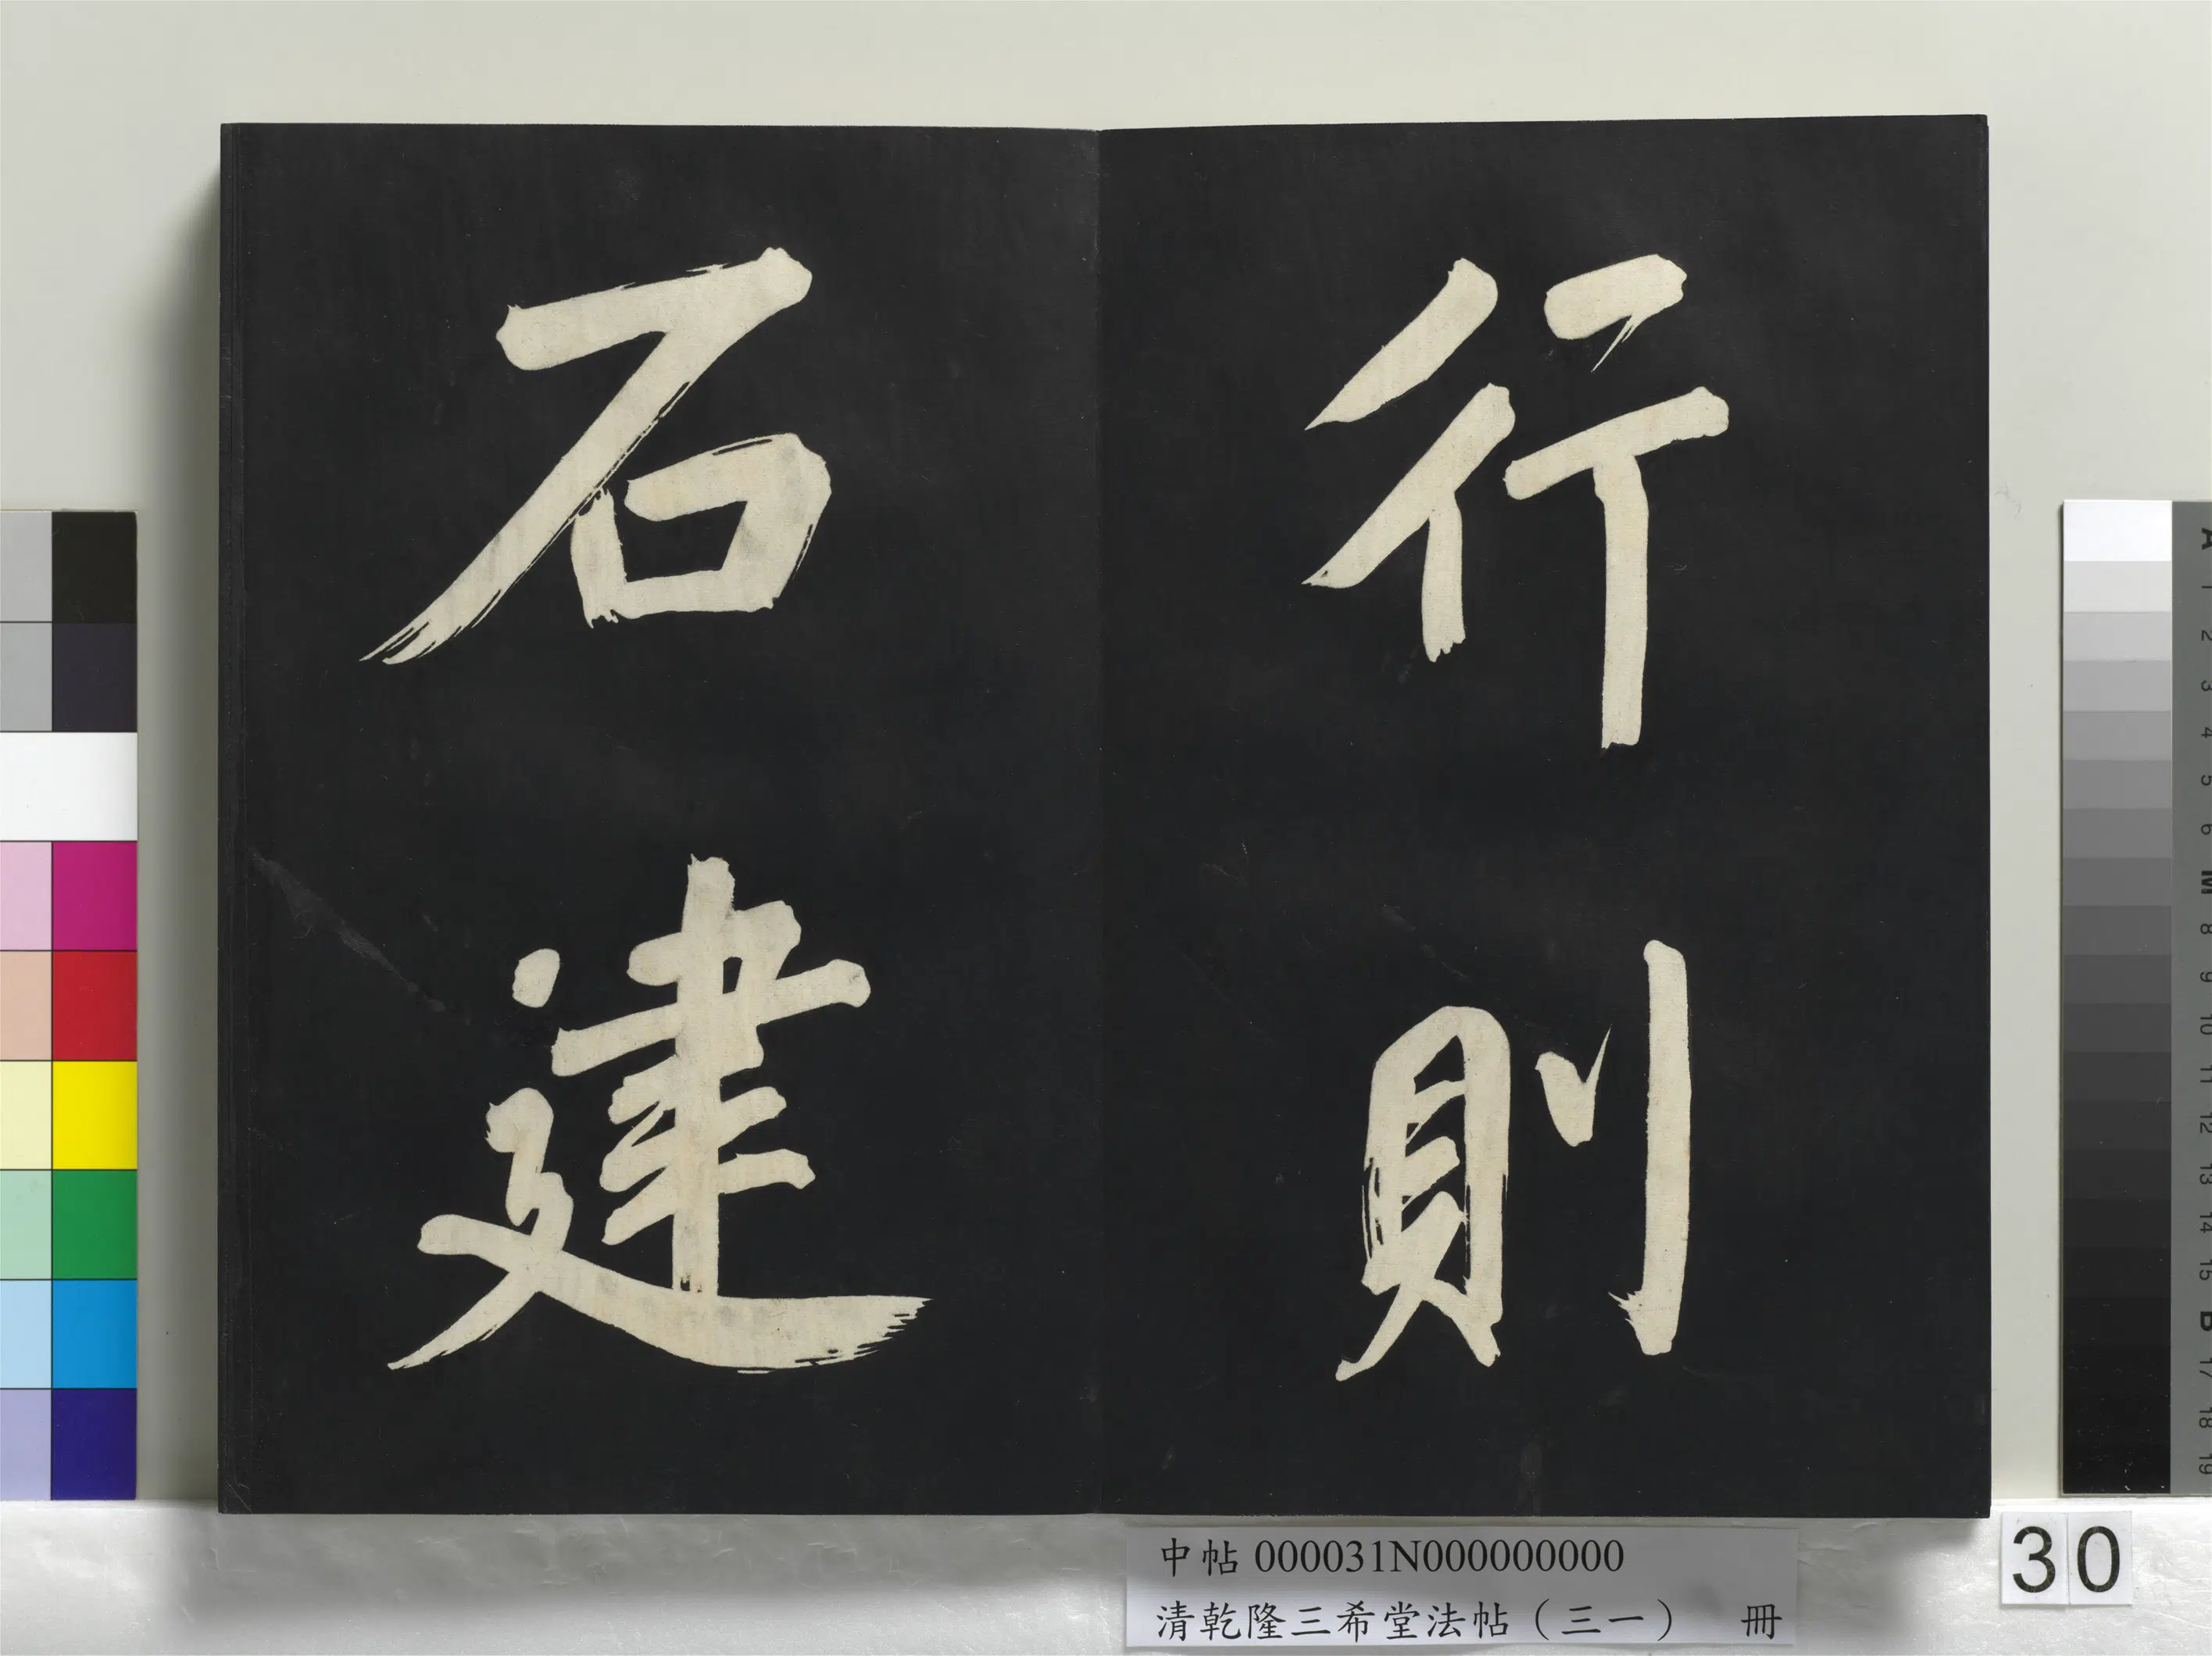 行則
石建
中帖 000031N000000000
清乾隆三希堂法帖（三一） 冊
30
A
1
2
3
4
5
6
M
8
9
10
11
12
13
14
15
B
17
18
19